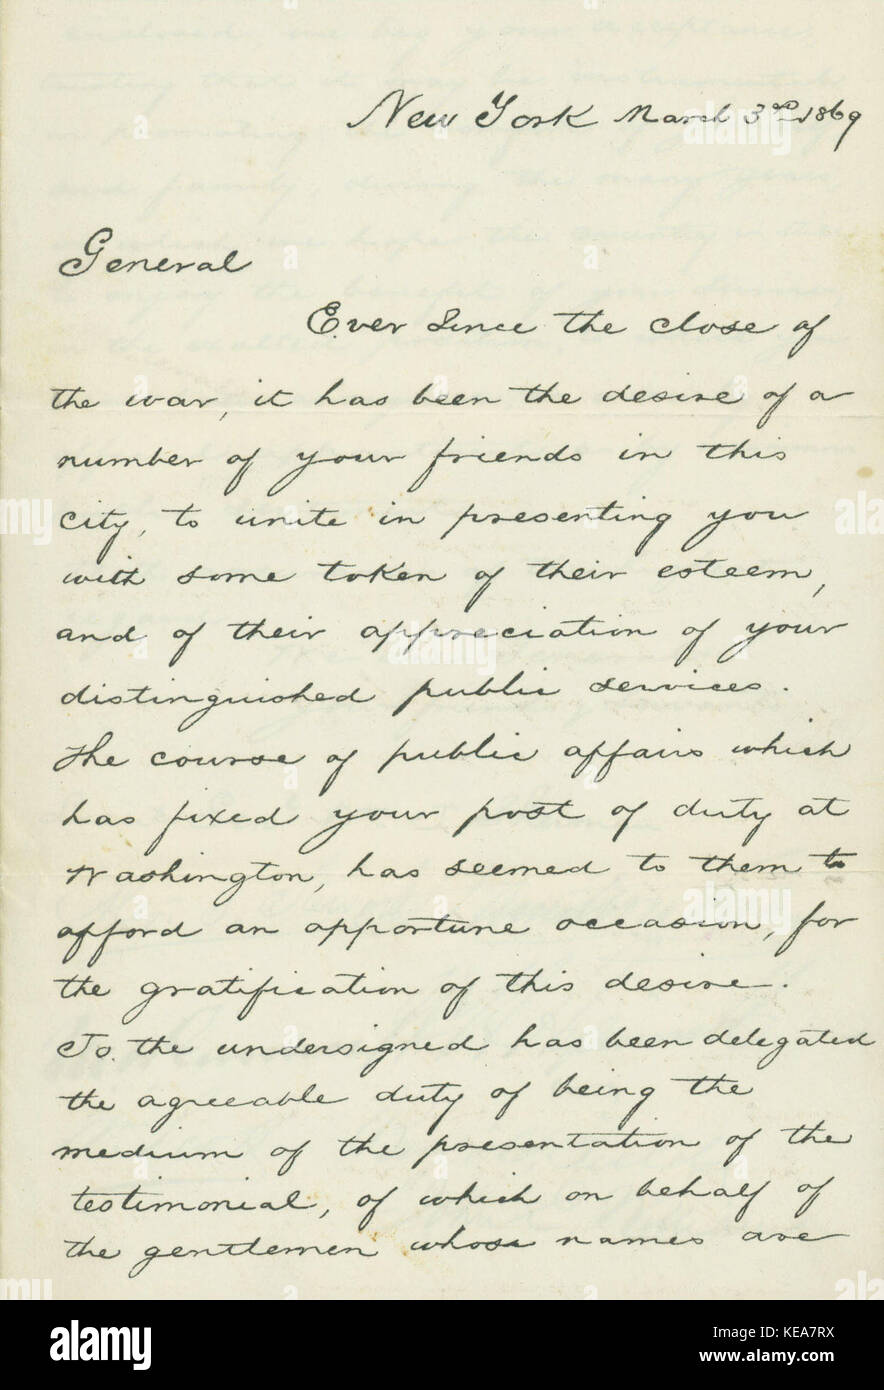 New York March 3rd 1869
General
Ever Since the close of
the war, it has been the desire of a
number of your friends in this
city, to unite in presenting you
with some token of their esteem,
and of their appreciation of your
distinguished public services.
The course of public affairs which
has fixed your post of duty at
Washington, has seemed to them to
afford an opportune occasion, for
the gratification of this desire.
To the undersigned has been delegated
the agreeable duty of being the
medium of the presentation of the
testimonial, of which on behalf of
the gentlemen whose names are
alamy
Image ID: KEA7RX
www.alamy.com